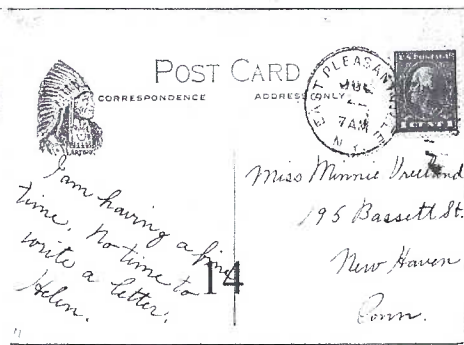 POST CARD
CORRESPONDENCE
ADDRESS ONLY
EAST PLEASANT
JUL
7AM
N.Y.
U.S. POSTAGE
1 CENT 1
I am having a fine
time. No time to
write a letter.
Helen.
14
Miss Minnie Vreeland
195 Bassett St.
New Haven
Conn.